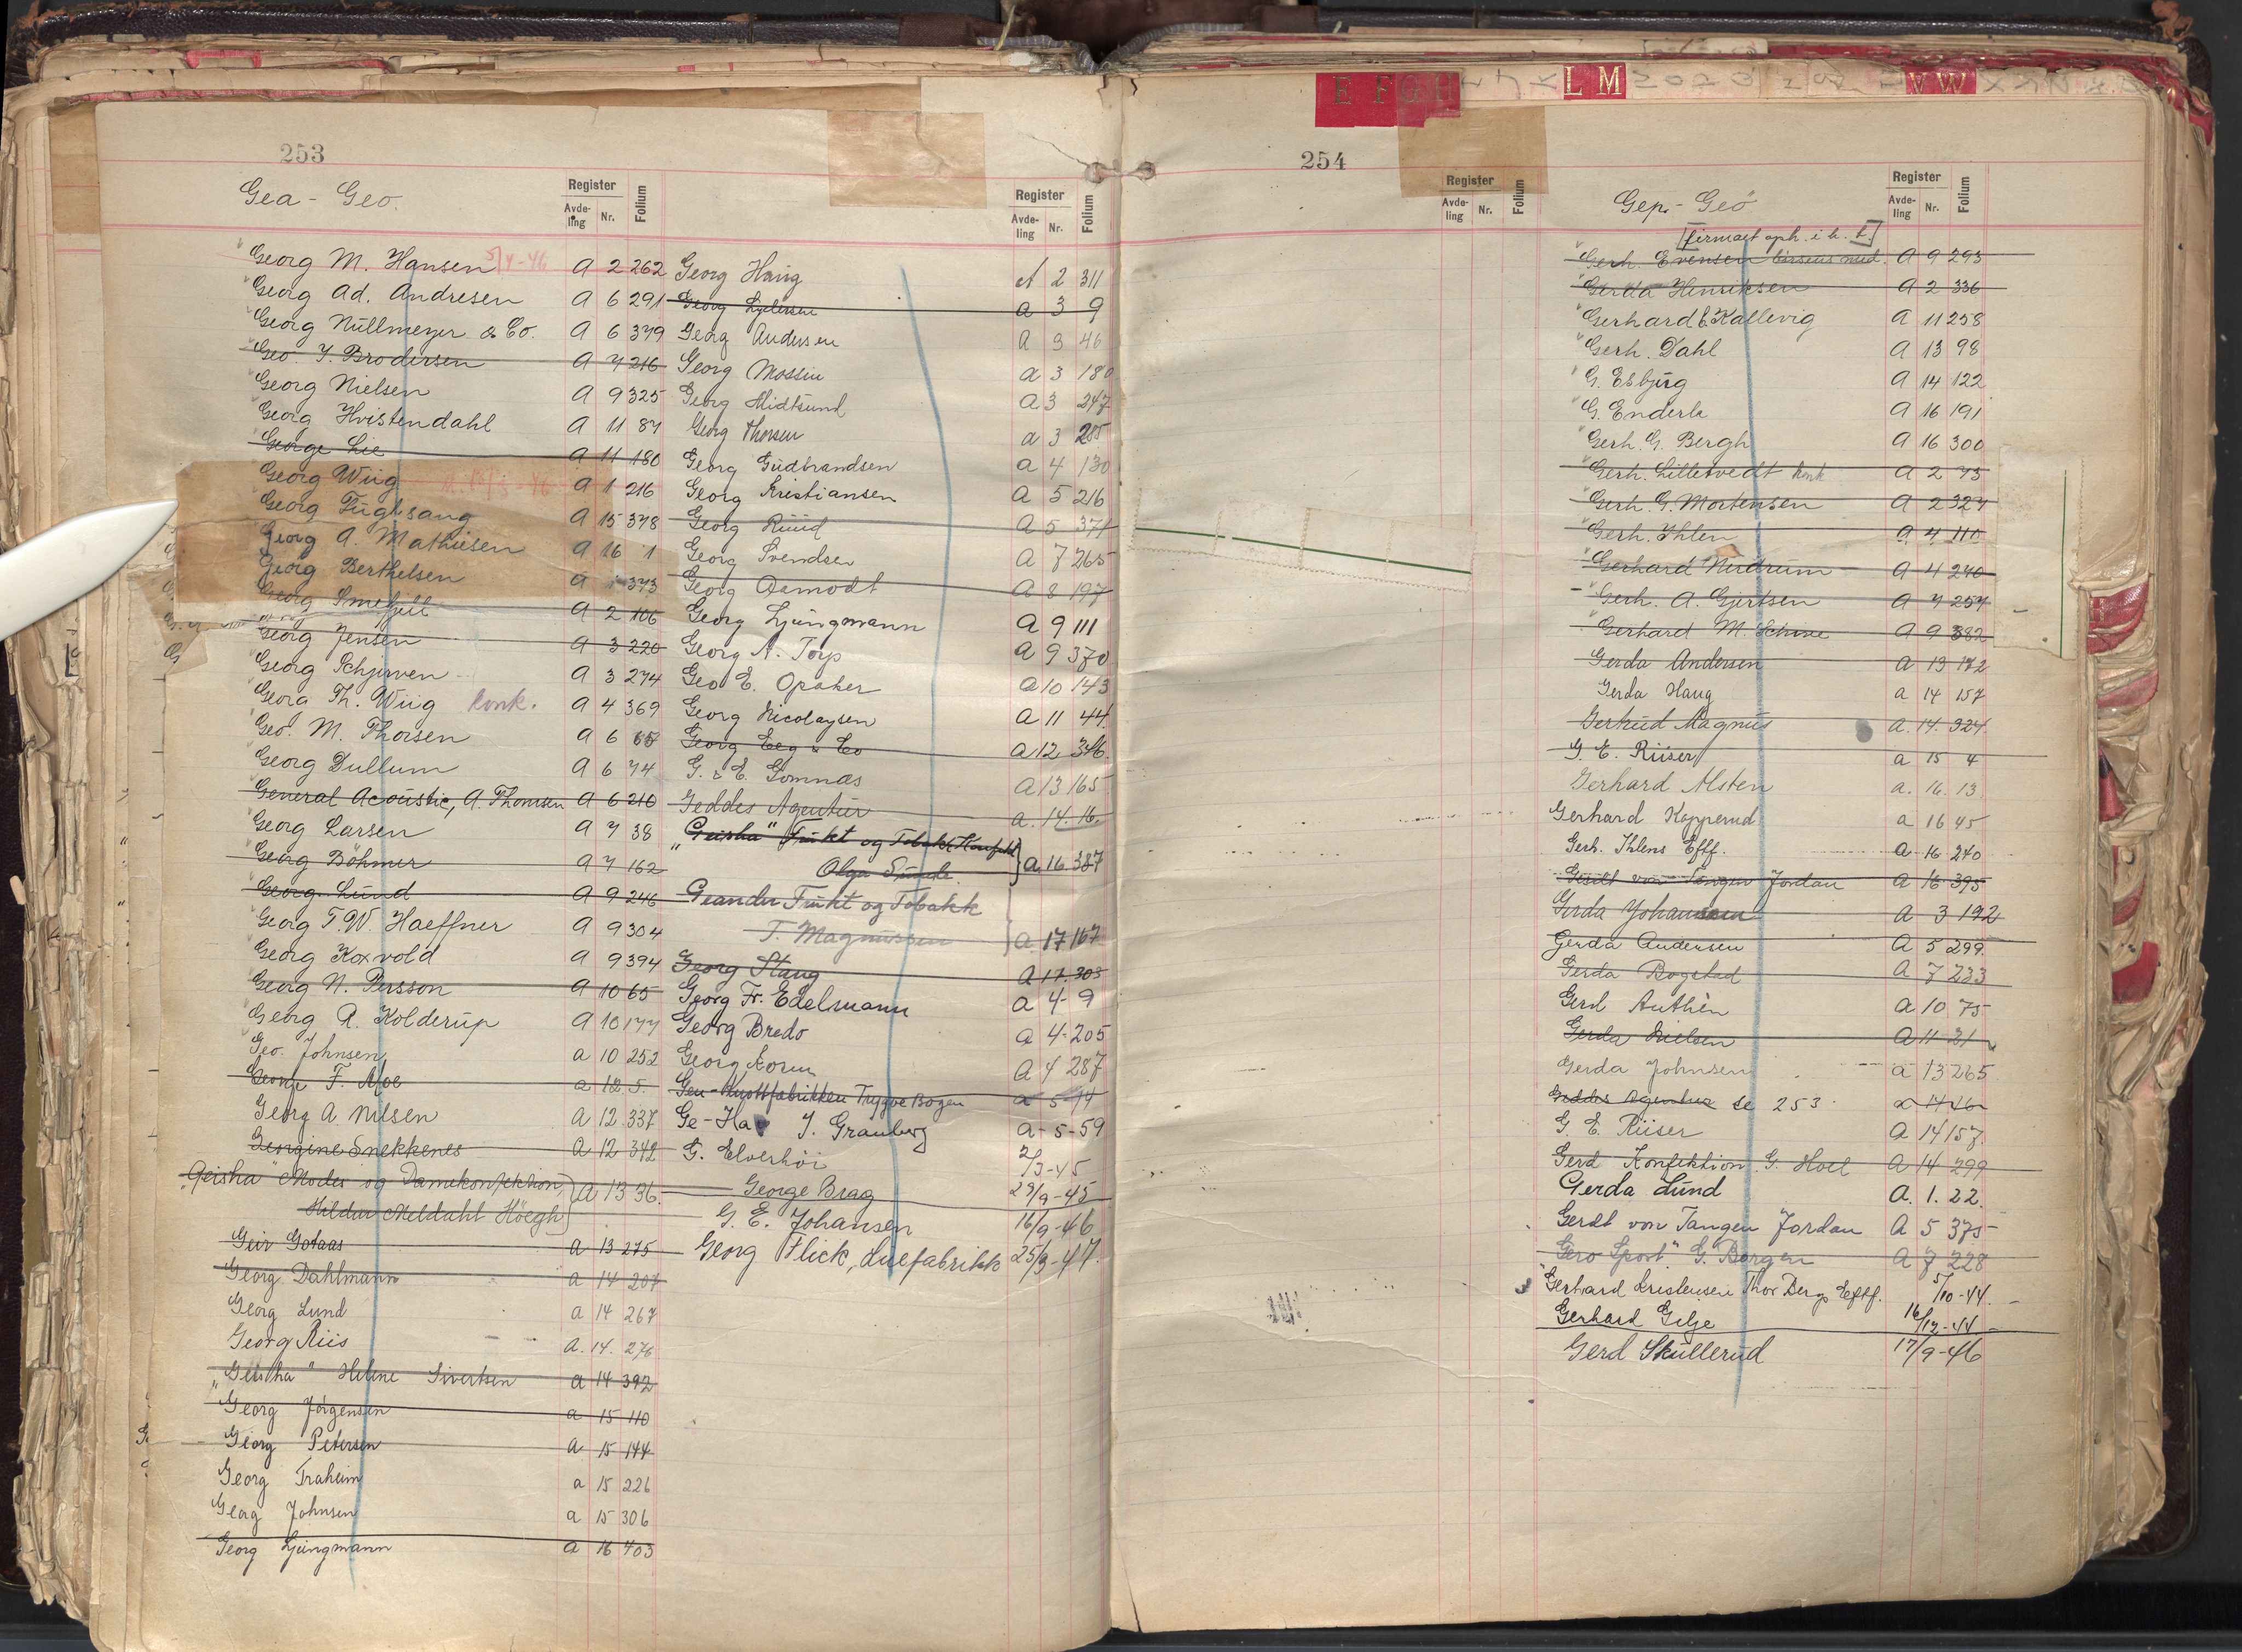 253
Gea - Geo.
Register
Avde-
ling
Nr.
Folium
Georg M. Hansen 5/4-46 A 2 262
Georg Ad. Andresen A 6 291
Georg Nüllmeyer & Co. A 6 379
Geo. J. Brodersen A 7 216
Georg Nielsen A 9 325
Georg Hvistendahl A 11 87
George Lie A 11 180
Georg Wiig A 1 216
Georg Fuglsang A 15 378
Georg A. Mathiesen A 16 1
Georg Berthelsen A 373
Georg Smefjell A 2 106
Georg Jensen A 3 220
Georg Schjerven A 3 274
Georg Th. Wiig konk. A 4 369
Geo. M. Thorsen A 6
Georg Dullum A 6 74
General Acoustic, A. Thomsen A 6 210
Georg Larsen A 7 38
Georg Böhmer A 7 162
Georg Lund A 9 246
Georg T. W. Haeffner A 9 304
Georg Koxvold A 9 394
Georg N. Persson A 10 65
Georg A. Kolderup A 10 177
Geo. Johnsen a 10 252
George F. Moe a 12. 5.
Georg A. Nilsen A 12. 337
Georgine Snekkenes A 12 342
"Geisha" Modes og Damekonfektion A 13 36.
Hildur Meldahl Höegh
Geir Gotaas a 13 275
Georg Dahlmann a 14 207
Georg Lund a 14 267
Georg Riis a. 14. 276
"Geisha" Helene Sivertsen a 14 392
Georg Jørgensen a 15 110
Georg Petersen a 15 144
Georg Traheim a 15 226
Georg Johnsen a 15 306
Georg Ljungmann a 16 403
Register
Avde-
ling
Nr.
Folium
Georg Haug A 2 311
Georg Lydersen a 3 9
Georg Andersen a 3 46
Georg Mossin a 3 180
Georg Midtsund a 3 247
Georg Thorsen a 3 285
Georg Gudbrandsen a 4 130
Georg Kristiansen a 5 216
Georg Ruud a 5 371
Georg Svendsen a 7 265
Georg Aamodt a 8 197
Georg Ljungmann a 9 111
Georg A. Torp a 9 370
Geo E. Opaker a 10 143
Georg Nicolaysen a 11 44.
Georg Eeg & Co a 12 346.
G. & E. Gomnæs a 13 165
Geddes Agentur a. 14. 16.
"Geisha" Frukt og Tobakk, Konfekt
Olga Sunde a. 16. 387
Geander Frukt og Tobakk
T. Magnussen a 17 167
Georg Stang a 17. 303
Georg Fr. Edelmann a 4- 9
Georg Bredo a 4-205
Georg Koren a 4 287
Gen-Knottfabrikken Trygve Bogen a 5 14
Ge-Ha J. Granberg a-5-59
G. Elverhöi 2/3-45
George Brag 29/9-45
G. E. Johansen 16/9-46
Georg Flick, duefabrikk 25/9-47.
254
E F G H L M V W
Register
Avde-
ling
Nr.
Folium
Gep. - Geö
Register
Avde-
ling
Nr.
Folium
[firmaet oph. i h. t.]
Gerh. Evensen A 9 293
Gerda Henriksen A 2 336
Gerhard C. Kallevig A 11 258
Gerh. Dahl A 13 98
G. Esbjug A 14 122
G. Enderle A 16 191
Gerh. G. Bergh A 16 300
Gerh. Lilletvedt konk A 2 73
Gerh. G. Mortensen A 2 327
Gerh. Ihlen A 4 110
Gerhard Nerdrum A 4 240
Gerh. A. Gjertsen A 7 257
Gerhard M. A 9 382
Gerda Andersen a 13 172
Gerda Haug a 14 157
Gertrud Magnus a. 14. 324.
G. E. Riiser a 15 4
Gerhard Alsten a. 16. 13.
Gerhard Kopperud a 16 45
Gerh. Ihlens Eftf. a 16 240
Gerdt von Tangen Jordan a 16 395
Gerda Johansen a 3 192
Gerda Andersen a 5 299.
Gerda Bogstad a 7 233
Gerd Authèn a 10 75
Gerda Nielsen a 11 21
Gerda Johnsen a 13 265
Geddes Agentur se 253. a 14 46
G. E. Riiser a 14 157.
Gerd Konfektion G. Hoel a 14 299
Gerda Lund a. 1. 22.
Gerdt von Tangen Jordan a 5 375
"Gero Sport" G. Borgen a 7 228
Gerhard Kristensen Thor Bergs Eftf. 5/10-44.
Gerhard Gilje 16/12-44
Gerd Skullerud 17/9-46